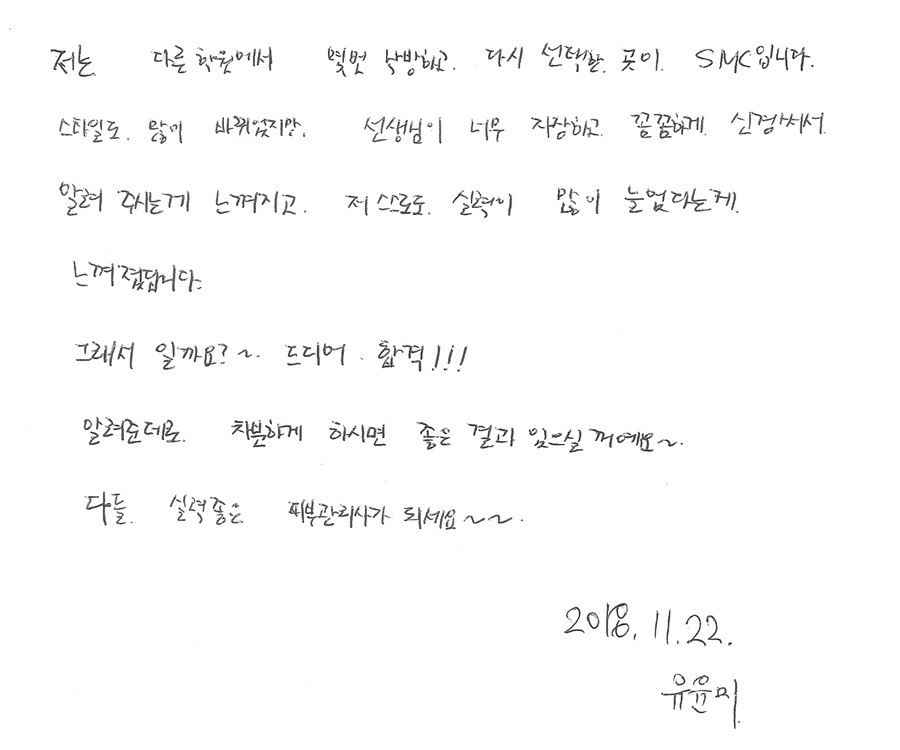 저는 다른 학원에서 몇번 낙방하고. 다시 선택한 곳이. SMC입니다.
스타일도. 많이 바뀌었지만. 선생님이 너무 자장하고. 꼼꼼하게. 신경써서.
알려 주시는게 느껴지고. 저 스스로도. 실력이 많이 늘었다는게.
느껴졌답니다.
그래서 일까요?~. 드디어. 합격!!!
알려준데로. 차분하게 하시면 좋은 결과 있으실 꺼예요~.
다들. 실력좋은 피부관리사가 되세요~~.
2018. 11. 22.
유윤미